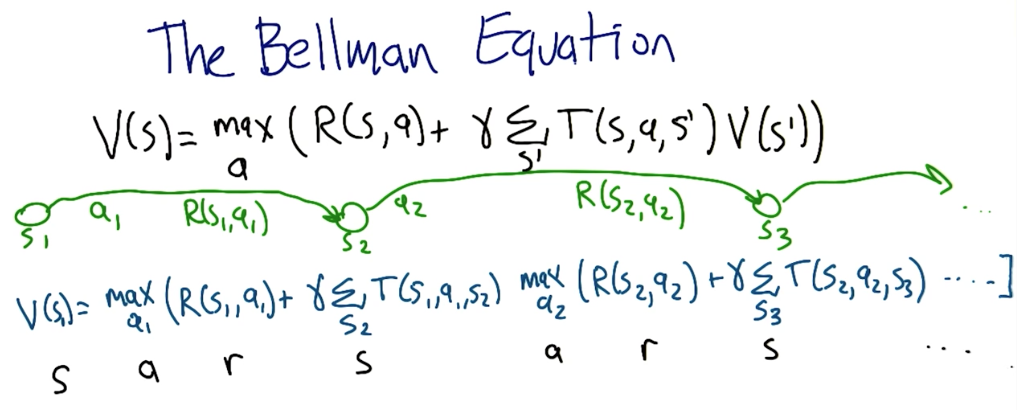 The Bellman Equation
V(s) = max_a (R(s,a) + γ Σ_s' T(s,a,s') V(s'))
s₁ a₁ R(s₁,a₁) s₂ a₂ R(s₂,a₂) s₃ ...
V(s₁) = max_a₁ (R(s₁,a₁) + γ Σ_s₂ T(s₁,a₁,s₂) max_a₂ (R(s₂,a₂) + γ Σ_s₃ T(s₂,a₂,s₃) ....]
s a r s a r s ...